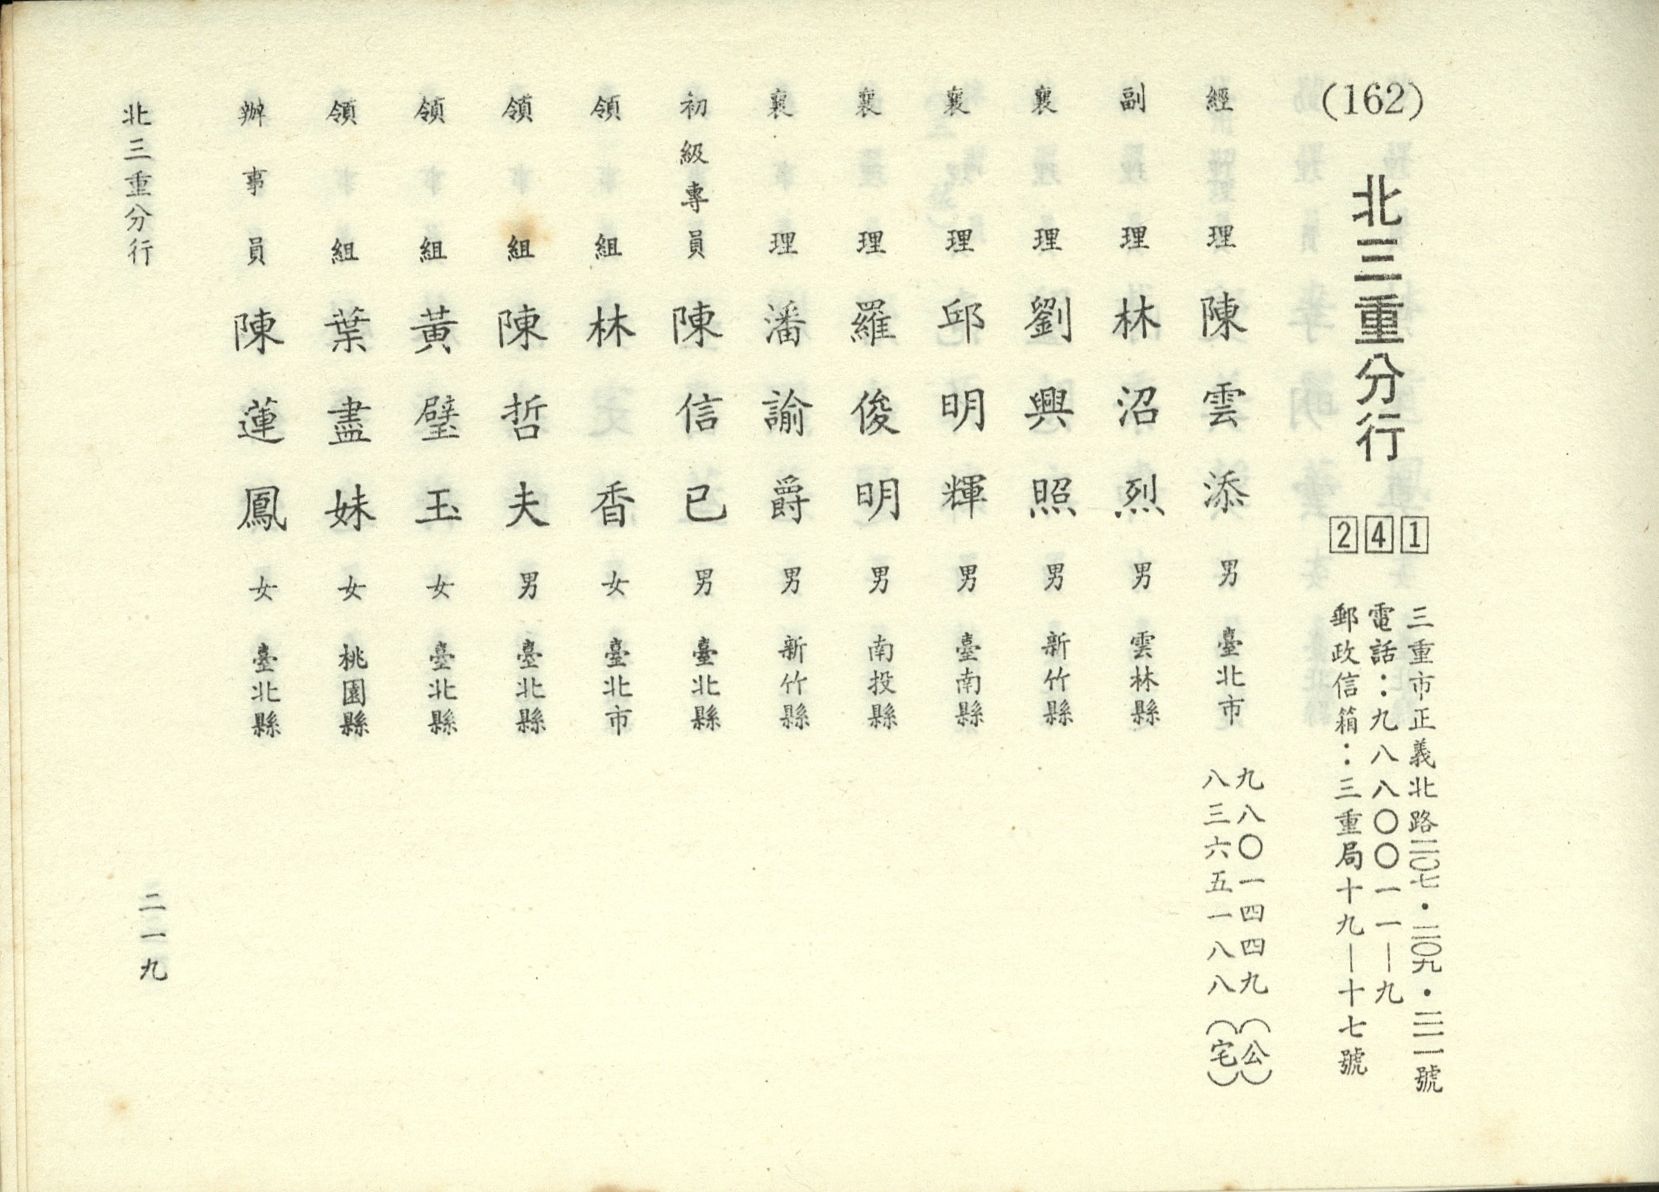 (162)
北三重分行
241
三重市正義北路二〇七・二〇九・二一一號
電話：九八八〇〇一一—九
郵政信箱：三重局十九—十七號
經理 陳雲添 男 臺北市 九八〇一四四九（公）
八三六五一八八（宅）
副理 林沼烈 男 雲林縣
襄理 劉興照 男 新竹縣
襄理 邱明輝 男 臺南縣
襄理 羅俊明 男 南投縣
襄理 潘諭爵 男 新竹縣
初級專員 陳信已 男 臺北縣
領組 林香 女 臺北市
領組 陳哲夫 男 臺北縣
領組 黃璧玉 女 臺北縣
領組 葉盡妹 女 桃園縣
辦事員 陳蓮鳳 女 臺北縣
北三重分行
二一九